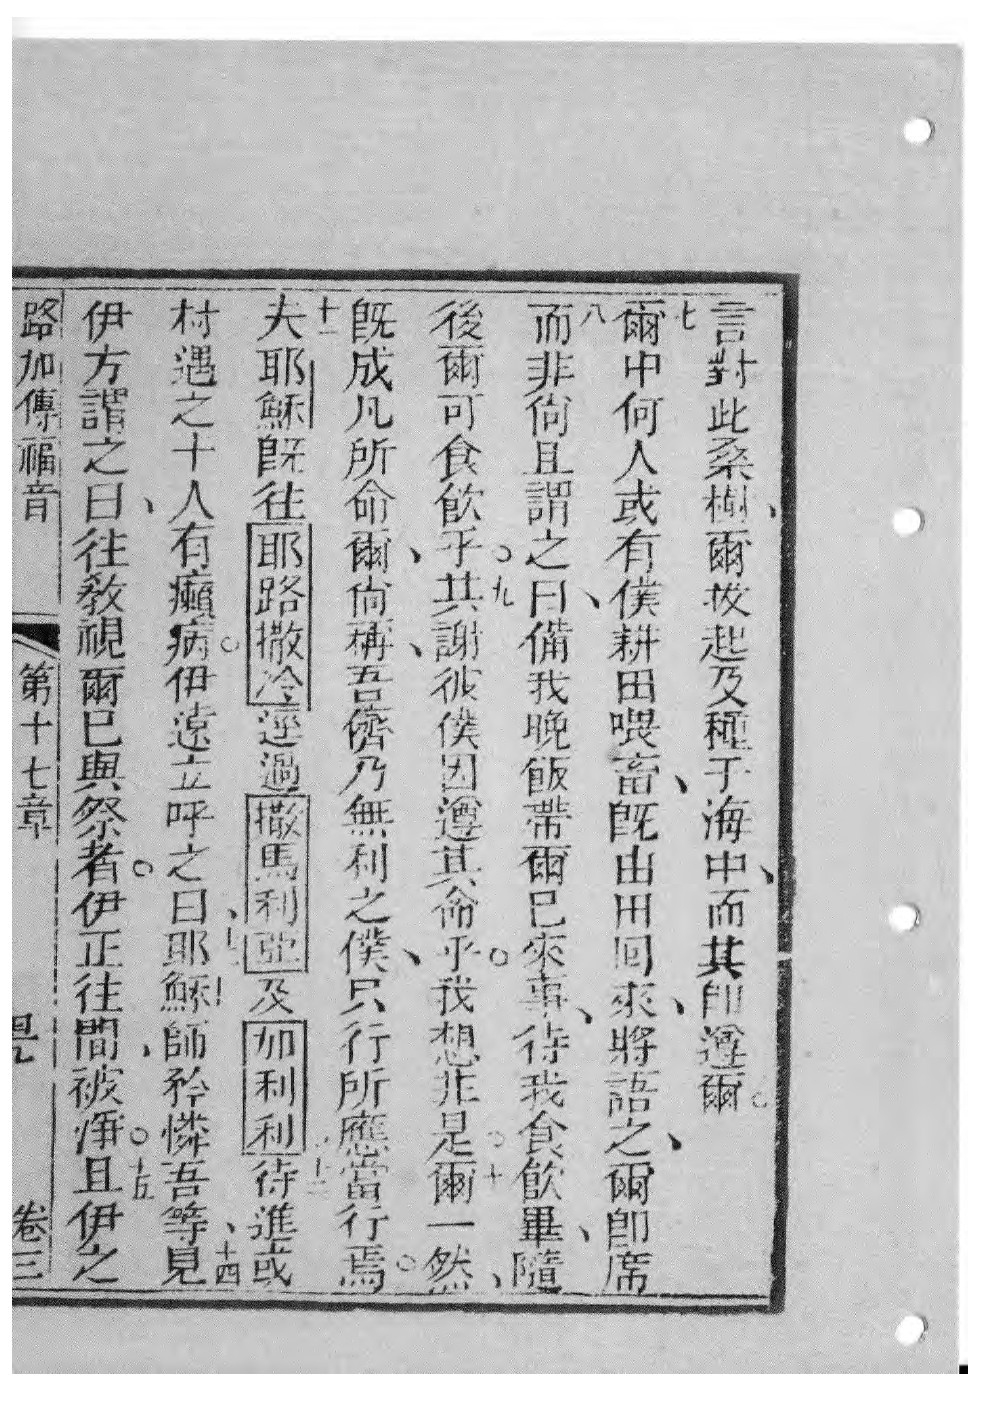 言對此桑樹、爾拔起及種于海中、而其即遵爾。
七爾中何人或有僕耕田喂畜、既由田回來、將語之、爾即席
八而非尙且謂之曰、備我晚飯帶爾巳來事、待我食飮畢、隨
後爾可食飮乎。九其謝彼僕因遵其命乎。我想非是。十爾一然、
既成凡所命爾、尙稱、吾儕乃無利之僕、只行所應當行焉。
十一夫耶穌既往耶路撒冷逕過撒馬利亞及加利利。十二待進或
村遇之十人有癩病。伊遠立呼之曰、耶穌師矜憐吾等、十四見
伊方謂之曰、往敎視爾巳與祭者。伊正往間、被淨。十五且伊之
路加傳福音 第十七章 卷三